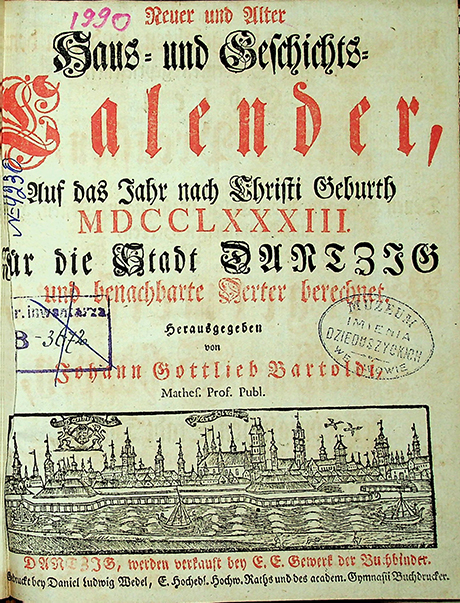 1990
Neuer und Alter
Haus= und Geschichts=
Calender,
Auf das Jahr nach Christi Geburth
MDCCLXXXIII.
Für die Stadt DANTZIG
und benachbarte Oerter berechnet,
Herausgegeben
von
Johann Gottlieb Bartoldi,
Mathes. Prof. Publ.
r. inwentarza
B-3672
MUZEUM
IMIENIA
DZIEDUSZYCKICH
WE LWOWIE
DANTZIG, werden verkauft bey E. E. Gewerk der Buchbinder.
Gedruckt bey Daniel Ludwig Wedel, E. Hochedl. Hochw. Raths und des academ. Gymnasii Buchdrucker.